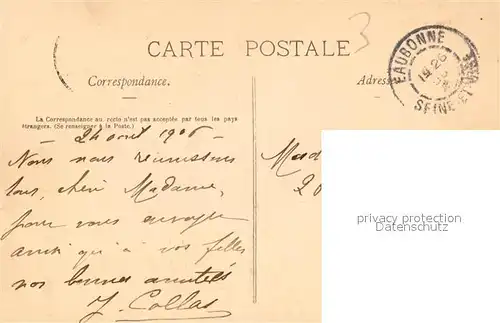 3
CARTE POSTALE
EAUBONNE
19 26
SEINE ET OISE
Correspondance.
Adresse
La Correspondance au recto n'est pas acceptée par tous les pays
étrangers. (Se renseigner à la Poste.)
24 août 1906
Nous nous réunissons
tous, chère Madame,
pour vous envoyer
ainsi qu'à vos filles
nos bonnes amitiés
J. Collas
Mad
2
privacy protection
Datenschutz